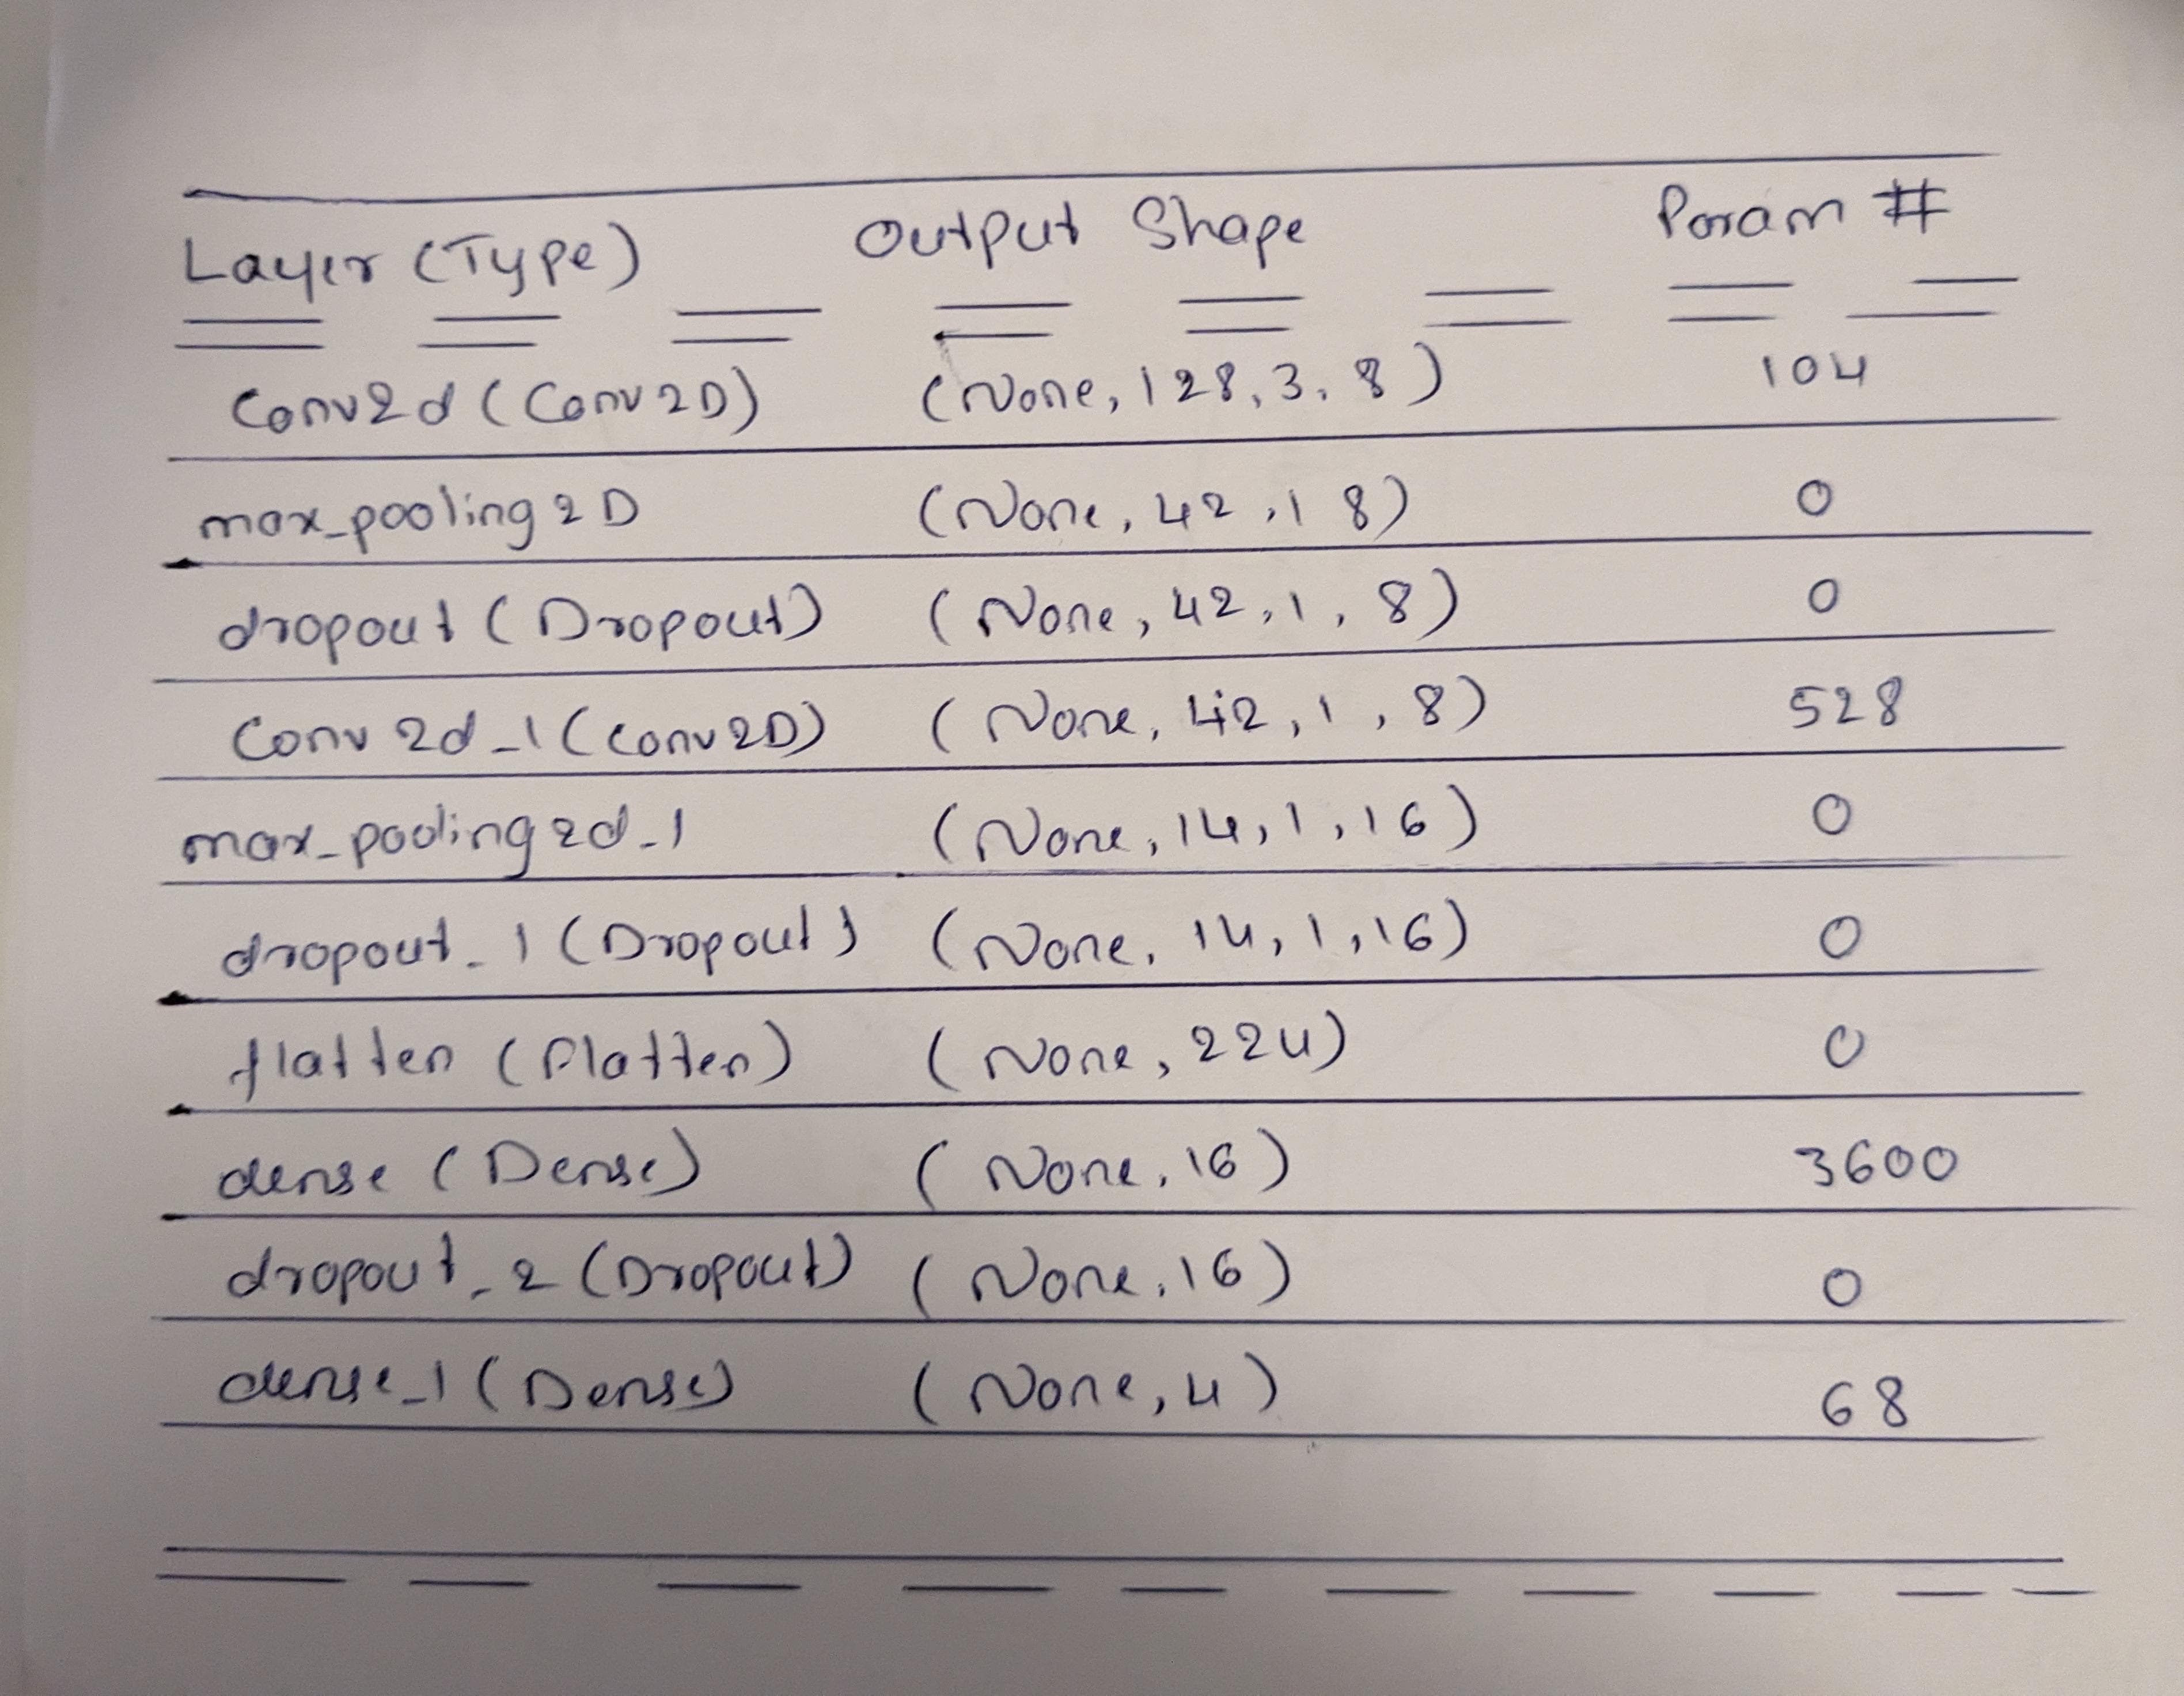 Layer (Type) Output Shape Param #
Conv2d (Conv2D) (None, 128, 3, 8) 104
max_pooling2D (None, 42, 1 8) 0
dropout (Dropout) (None, 42, 1, 8) 0
Conv2d_1 (Conv2D) (None, 42, 1, 8) 528
max_pooling2d_1 (None, 14, 1, 16) 0
dropout_1 (Dropout) (None, 14, 1, 16) 0
flatten (Flatten) (None, 224) 0
dense (Dense) (None, 16) 3600
dropout_2 (Dropout) (None, 16) 0
dense_1 (Dense) (None, 4) 68